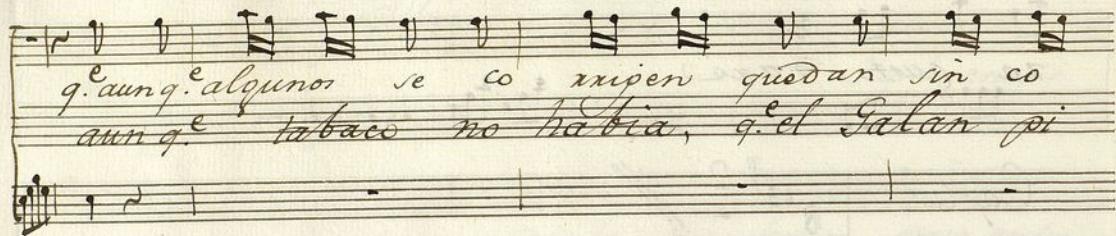 q.e aun q.e algunos se co rrigen quedan sin co
aun q.e tabaco no habia, q.e el Galan pi